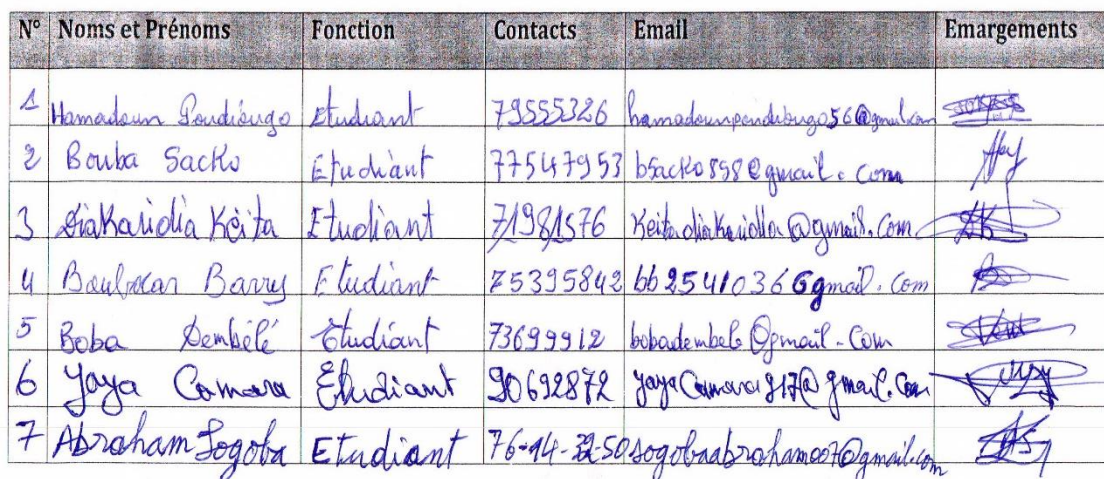 N° Noms et Prénoms Fonction Contacts Email Emargements
1 Hamadoun Poudiougo Etudiant 79555326 hamadounpoudiougo56@gmail.com
2 Bouba Sacko Etudiant 77547953 bsacko898@gmail.com
3 Diakaridia Keita Etudiant 71981576 Keitadiakaridia@gmail.com
4 Boubacar Barry Etudiant 75395842 bb25410366gmail.com
5 Boba Dembélé Etudiant 73699912 bobadembele@gmail.com
6 Yaya Camara Etudiant 90692872 YayaCamara917@gmail.com
7 Abraham Sogoba Etudiant 76-94-32-50 sogobaabraham007@gmail.com